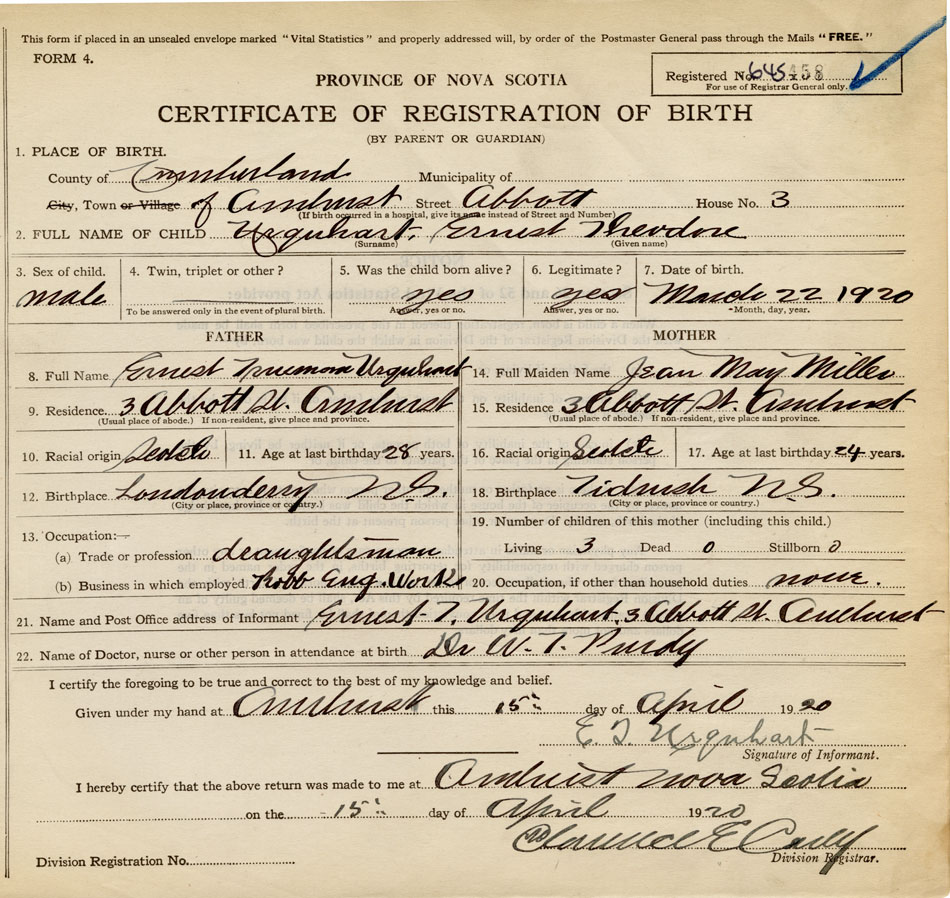 This form if placed in an unsealed envelope marked "Vital Statistics" and properly addressed will, by order of the Postmaster General pass through the Mails "FREE."
FORM 4.
Registered No. 645
For use of Registrar General only.
PROVINCE OF NOVA SCOTIA
CERTIFICATE OF REGISTRATION OF BIRTH
(BY PARENT OR GUARDIAN)
1. PLACE OF BIRTH.
County of Cumberland Municipality of
City, Town or Village of Amherst Street Abbott House No. 3
(If birth occurred in a hospital, give its name instead of Street and Number)
2. FULL NAME OF CHILD Urquhart, Ernest Theodore
(Surname) (Given name)
3. Sex of child. 4. Twin, triplet or other? 5. Was the child born alive? 6. Legitimate? 7. Date of birth.
male yes yes March 22 1920
To be answered only in the event of plural birth. Answer, yes or no. Answer, yes or no. Month, day, year.
FATHER MOTHER
8. Full Name Ernest Urquhart 14. Full Maiden Name Jean May Miller
9. Residence. 3 Abbott St. Amherst 15. Residence 3 Abbott St. Amherst
(Usual place of abode.) If non-resident, give place and province. (Usual place of abode.) If non-resident, give place and province.
10. Racial origin Scotch 11. Age at last birthday 28 years. 16. Racial origin Scotch 17. Age at last birthday 24 years.
12. Birthplace Londonderry N.S. 18. Birthplace Tidnish N.S.
(City or place, province or country.) (City or place, province or country.)
19. Number of children of this mother (including this child.)
13. Occupation:—
Living 3 Dead 0 Stillborn 0
(a) Trade or profession draughtsman
(b) Business in which employed Robb Eng. Works 20. Occupation, if other than household duties none.
21. Name and Post Office address of Informant Ernest T. Urquhart, 3 Abbott St. Amherst
22. Name of Doctor, nurse or other person in attendance at birth Dr W. T. Purdy
I certify the foregoing to be true and correct to the best of my knowledge and belief.
Given under my hand at Amherst this 15th day of April 1920
E T Urquhart
Signature of Informant.
I hereby certify that the above return was made to me at Amherst Nova Scotia
on the 15th day of April 1920
Clarence E
Division Registration No. Division Registrar.